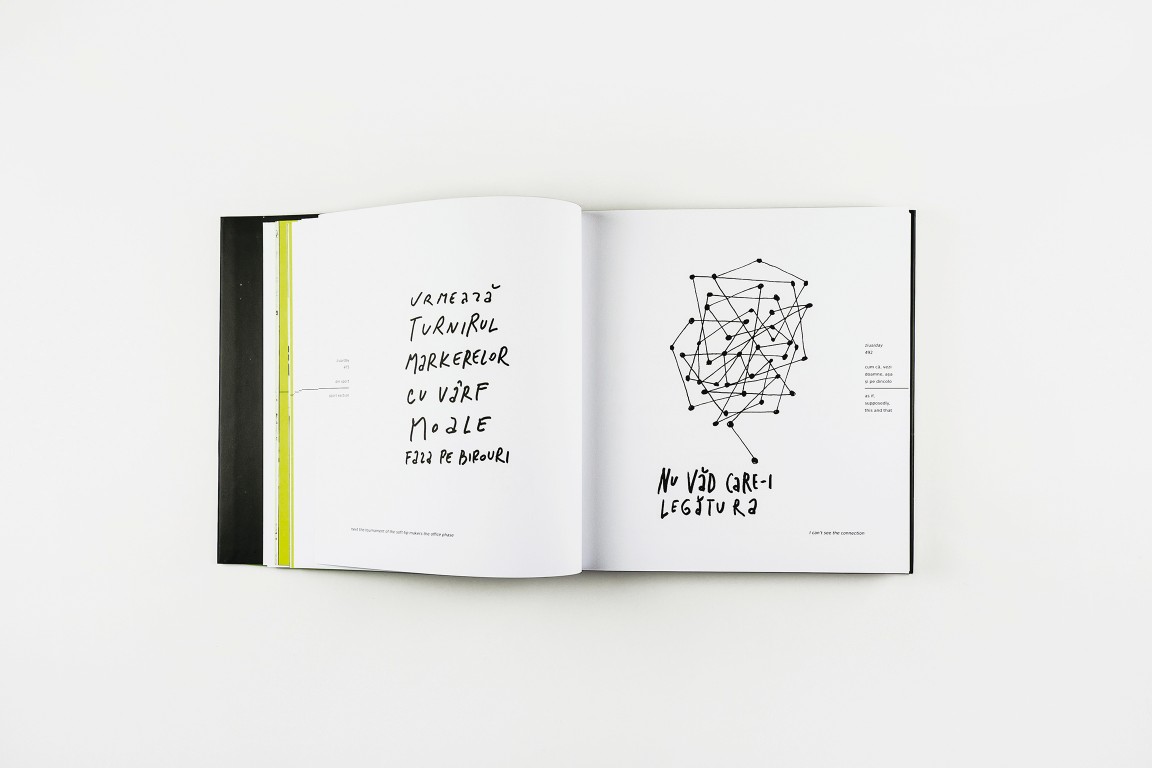 URMEAZĂ
TURNIRUL
MARKERELOR
CU VÂRF
MOALE
FAZA PE BIROURI
next the tournament of the soft tip makers the office phase
NU VĂD CARE-I
LEGĂTURA
I can't see the connection
ziuarday
492
cum că, vezi
doamne, așa
și pe dincole
as if,
supposedly,
this and that